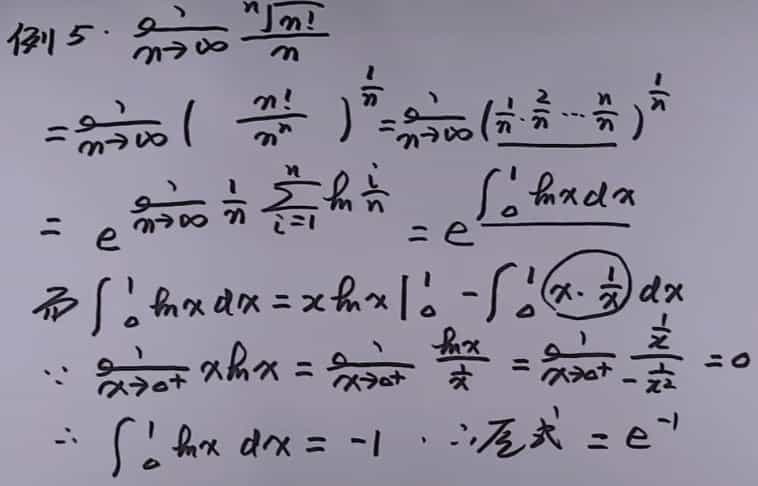 例5. lim_{n→∞} \frac{\sqrt[n]{n!}}{n}
= lim_{n→∞} ( \frac{n!}{n^n} )^{\frac{1}{n}} = lim_{n→∞} ( \frac{1}{n} · \frac{2}{n} ··· \frac{n}{n} )^{\frac{1}{n}}
= e^{lim_{n→∞} \frac{1}{n} \sum_{i=1}^{n} ln \frac{i}{n}} = e^{\int_0^1 ln x dx}
而 \int_0^1 ln x dx = x ln x |_0^1 - \int_0^1 x · \frac{1}{x} dx
∵ lim_{x→0^+} x ln x = lim_{x→0^+} \frac{ln x}{\frac{1}{x}} = lim_{x→0^+} \frac{\frac{1}{x}}{-\frac{1}{x^2}} = 0
∴ \int_0^1 ln x dx = -1 . ∴ 原式 = e^{-1}